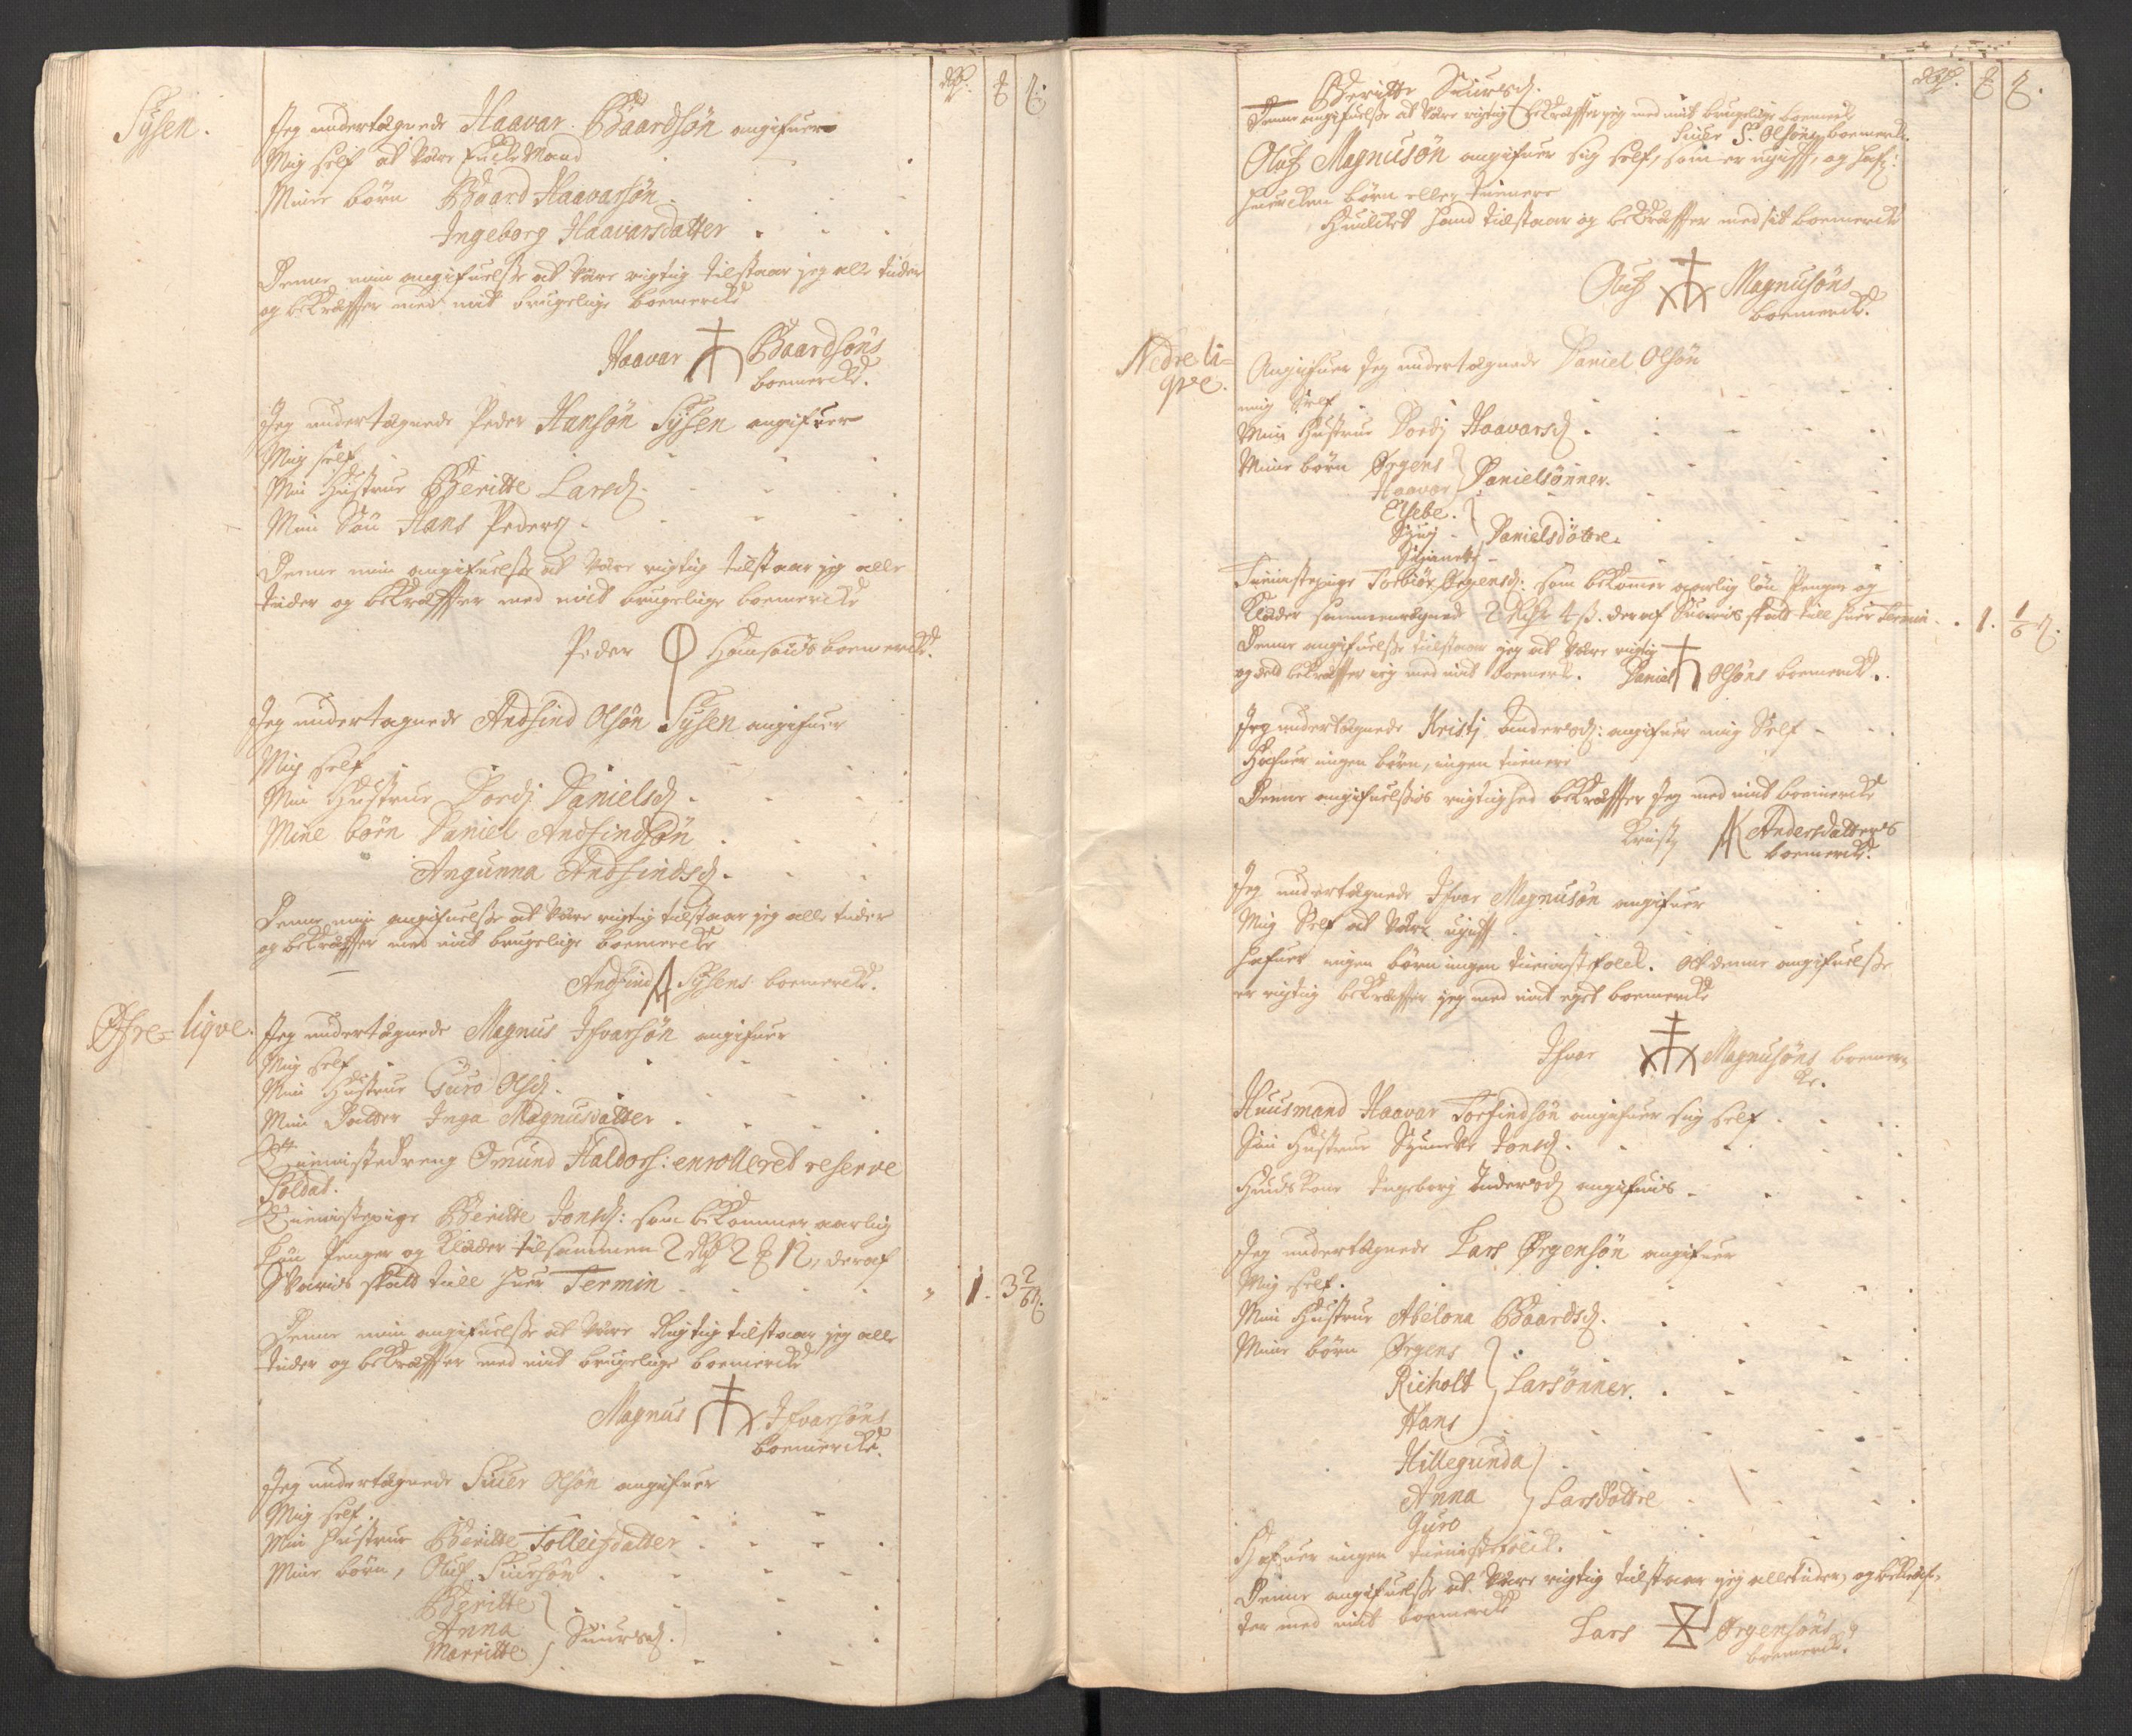 Sÿsen.
Jeg undertegnede Haavar Baardsøn angifuer
Mig self at være Encke Mand
Mine børn Baard Haavarsøn
Ingeborg Haavarsdatter
Denne min angifuelse at være rigtig tilstaar jeg alle tider
og bekræffter med mit brugelige boemercke
Haavar Baardsøns
boemercke.
Jeg undertegnede Peder Hansøn Sÿsen angifuer
Mig self
Min Hustrue Beritte Larsd.
Min Søn Hans Peders.
Denne min angifuelse at være rigtig tilstaar jeg alle
tider og bekræffter med mit brugelige boemercke
Peder Hansøns boemercke.
Jeg undertegnede Andfind Olsøn Sÿsen angifuer
Mig self
Min Hustrue Dordj Danielsd.
Mine børn Daniel Andfindsøn
Angunna Andfindsd.
Denne min angifuelse at være rigtig tilstaar jeg alle tider
og bekræffter med mit brugelige boemercke
Andfind Sÿsens boemercke.
Øfre-liqve. Jeg undertegnede Magnus Ifvarsøn angifuer
Mig self
Min Hustrue Guro Olsd.
Min Datter Inga Magnusdatter
Tienistedreng Omund Haldors: enrolleret reserve
Soldat.
Tienistepige Beritte Jonsd: som bekommer aarlig
Løn Penger og Klæder tilsammen 2 rdr 2 12, deraf
Svaris skatt till huer Termin 1. 3 2/6
Denne min angifuelse at være Rigtig tilstaar jeg alle
tider og bekræffter med mit brugelige boemercke
Magnus Ifvarsøns
boemercke.
Jeg undertegnede Siuer Olsøn angifuer
Mig self.
Min Hustrue Beritte Tolleifdatter
Mine børn, Oluf Siursøn
Beritte
Anna Siursd.
Marritte
Beritte Siursd.
Denne angifuelse at være rigtig bekræffter jeg med mit brugelige boemercke
Siuer S. Olsøns boemercke.
Oluf Magnusøn angifuer sig self, som er ugift, og hafr:
huercken børn eller tienere
Huilcket hand tilstaar og bekræffter med sit boemercke
Oluf Magnusøns
boemercke.
Nedre li=
qve.
Angifuer Jeg undertegnede Daniel Olsøn
mig Self
Min Hustrue Dordj Haavarsd.
Mine børn Ørgens
Haavar Danielsønner.
Elsebe.
Danielsdøttre.
Tienistepige Torbiør Ørgensd: som bekommer aarlig løn Penger og
Klæder sammenregned 2 Rdr 4 ß. deraf Svaris skatt till huer Termin 1. 1/6
Denne angifuelse tilstaar jeg at være rigtig
og det bekræffter jeg med mit boemerck. Daniel Olsøns boemerck.
Jeg undertegnede Kristj Andersd: angifuer mig Self
Hafuer ingen børn, ingen tienere
Denne angifuelsis rigtighed bekræffter Jeg med mit boemercke
Kristj Andersdatters
boemercke.
Jeg undertegnede Ifvar Magnusøn angifuer
Mig Self at være ugift
hafuer ingen børn ingen tienistefolck. At denne angifuelse
er rigtig bekræffter jeg med mit eget boemercke
Ifvar Magnusøns boemer=
cke.
Huusmand Haavar Torfindsøn angifuer sig self
Sin Hustrue Jonsd.
Huuskone Ingeborg Andersd angifuis
Jeg undertegnede Lars Ørgensøn angifuer
Mig self.
Min Hustrue Abelona Baardsd.
Mine børn Ørgens
Richolt Larsønner.
Hans
Hillegunda
Anna Larsdøttre
Guro
Hafuer ingen tienistefolck.
Denne angifuelse at være rigtig tilstaar jeg alletider, og bekræf=
ter med mit boemercke
Lars Ørgensøns
boemerck.